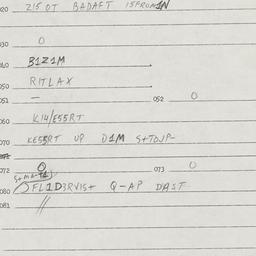 020 215 OT BADAFT 15FROM1N
030 O
040 B1Z1M
050 RITLAX
051 — 052 O
060 K14/E55RT
070 KE55RT UP D1M S+TOJP-
072 O 073 O
080 FL1D3RVIS+ Q-AP DAST
081 //